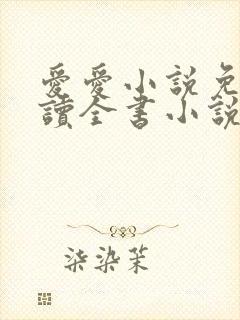 愛愛小說免
讀全書小說
柒染茉